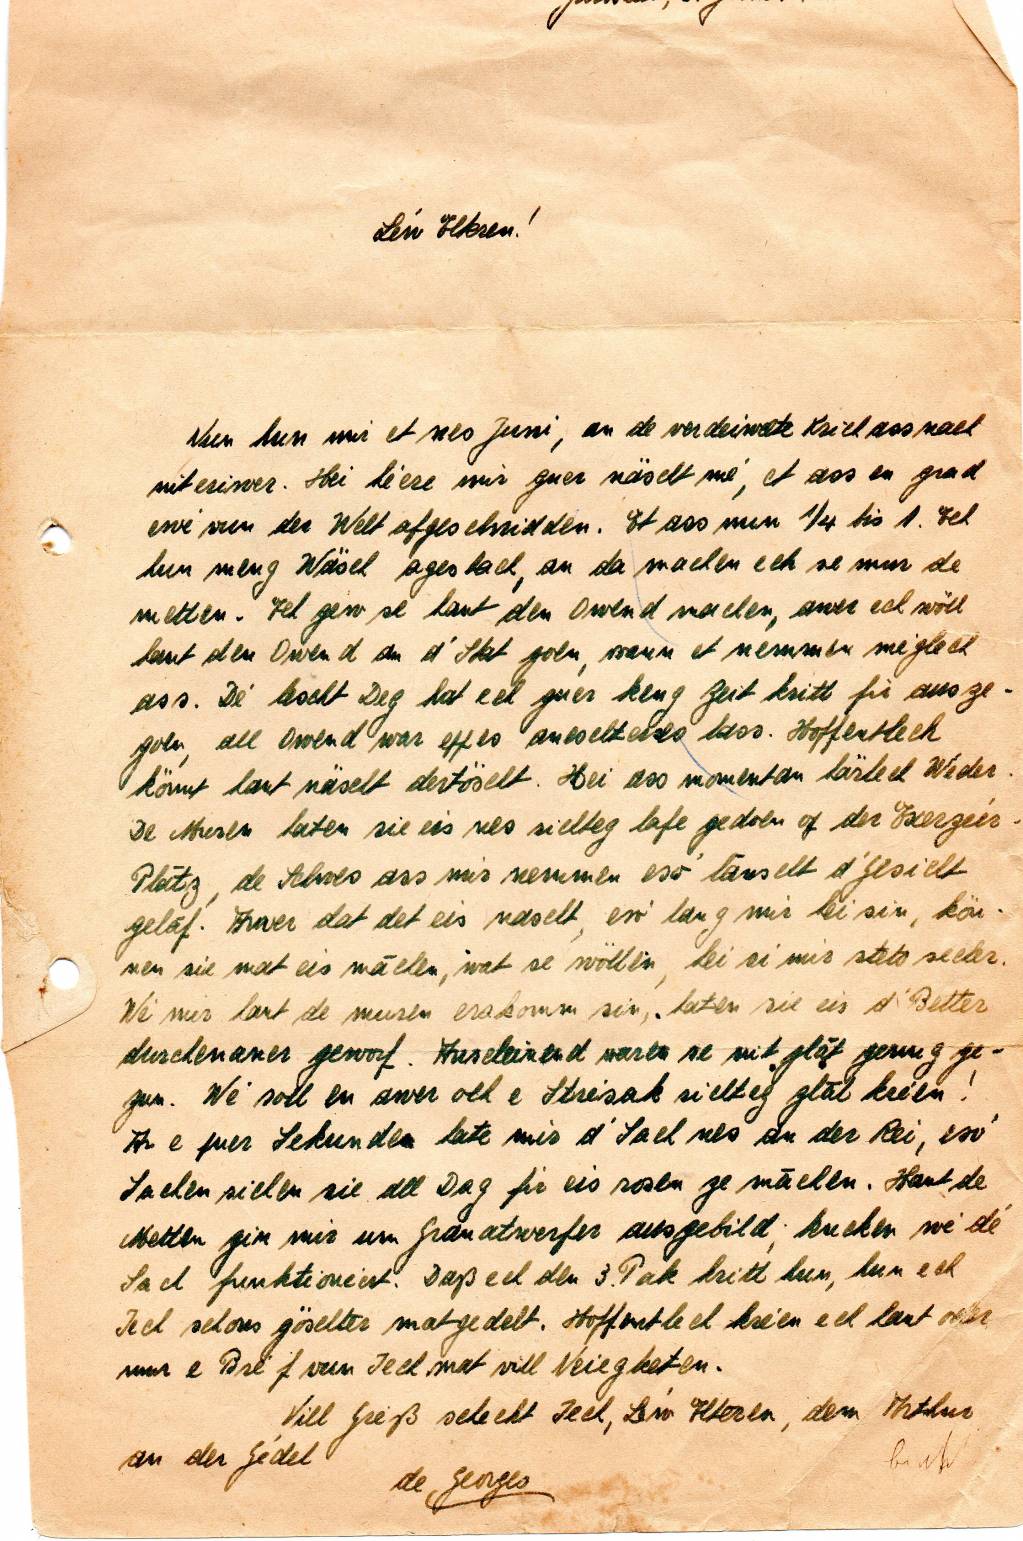 Léiv Elteren!
Nun hun mir et nes Juni, an de verdeiwelte Krich ass nach
nit eriwer. Hei héere mir guer näscht mé, et ass en grad
ewé vun der Welt ofgeschnidden. Et ass nun 1/4 bis 1. Ech
hun meng Wäsch ageshach, an da machen ech se mur de
metten. Ech gew se haut den Owend machen, awer ech wöll
haut den Owend an d'Stat goen, wann et nemmen méglech
ass. Dé lescht Deg hat ech guer keng Zeit kritt fir aus ze-
goen, all Owend war eppes anescht lass. Hoffentlech
könnt haut näscht dertöscht. Hei ass momentan härlech Weder.
De Muren haten sie eis nes richteg lafe gedoen of der Exerzéir-
Platz, de Schwes ass mir nemmen esó lanscht d'Gesicht
gelaf. Awer dat det eis nascht, esó lang mir hei sin, kön-
nen sie mat eis máchen, wat se wöllen, hei si mir stets secher.
Wé mir haut de muren erakomm sin, haten sie eis d'Better
durchenaner geworf. Anscheinend waren se nit glat genug ge-
gun. Wé soll en awer och e Stréisak richteg glat kréien!
An e puer Sekunden hate mir d'Sach nes an der Rei, esó
Sachen sichen sie all Dag fir eis rosen ze máchen. Haut de
Metten gin mir um Granatwerfer ausgebild, kucken wé dé
Sach funktionéiert. Daß ech den 3. Pak kritt hun, hun ech
Iech schons göschter matgedelt. Hoffentlech kréien ech haut oder
mur e Bréf vun Iech mat vill Neiegketen.
Vill Gréiß schéckt Iech, Léiv Elteren, dem Arthur
an der Gédel
de Georges